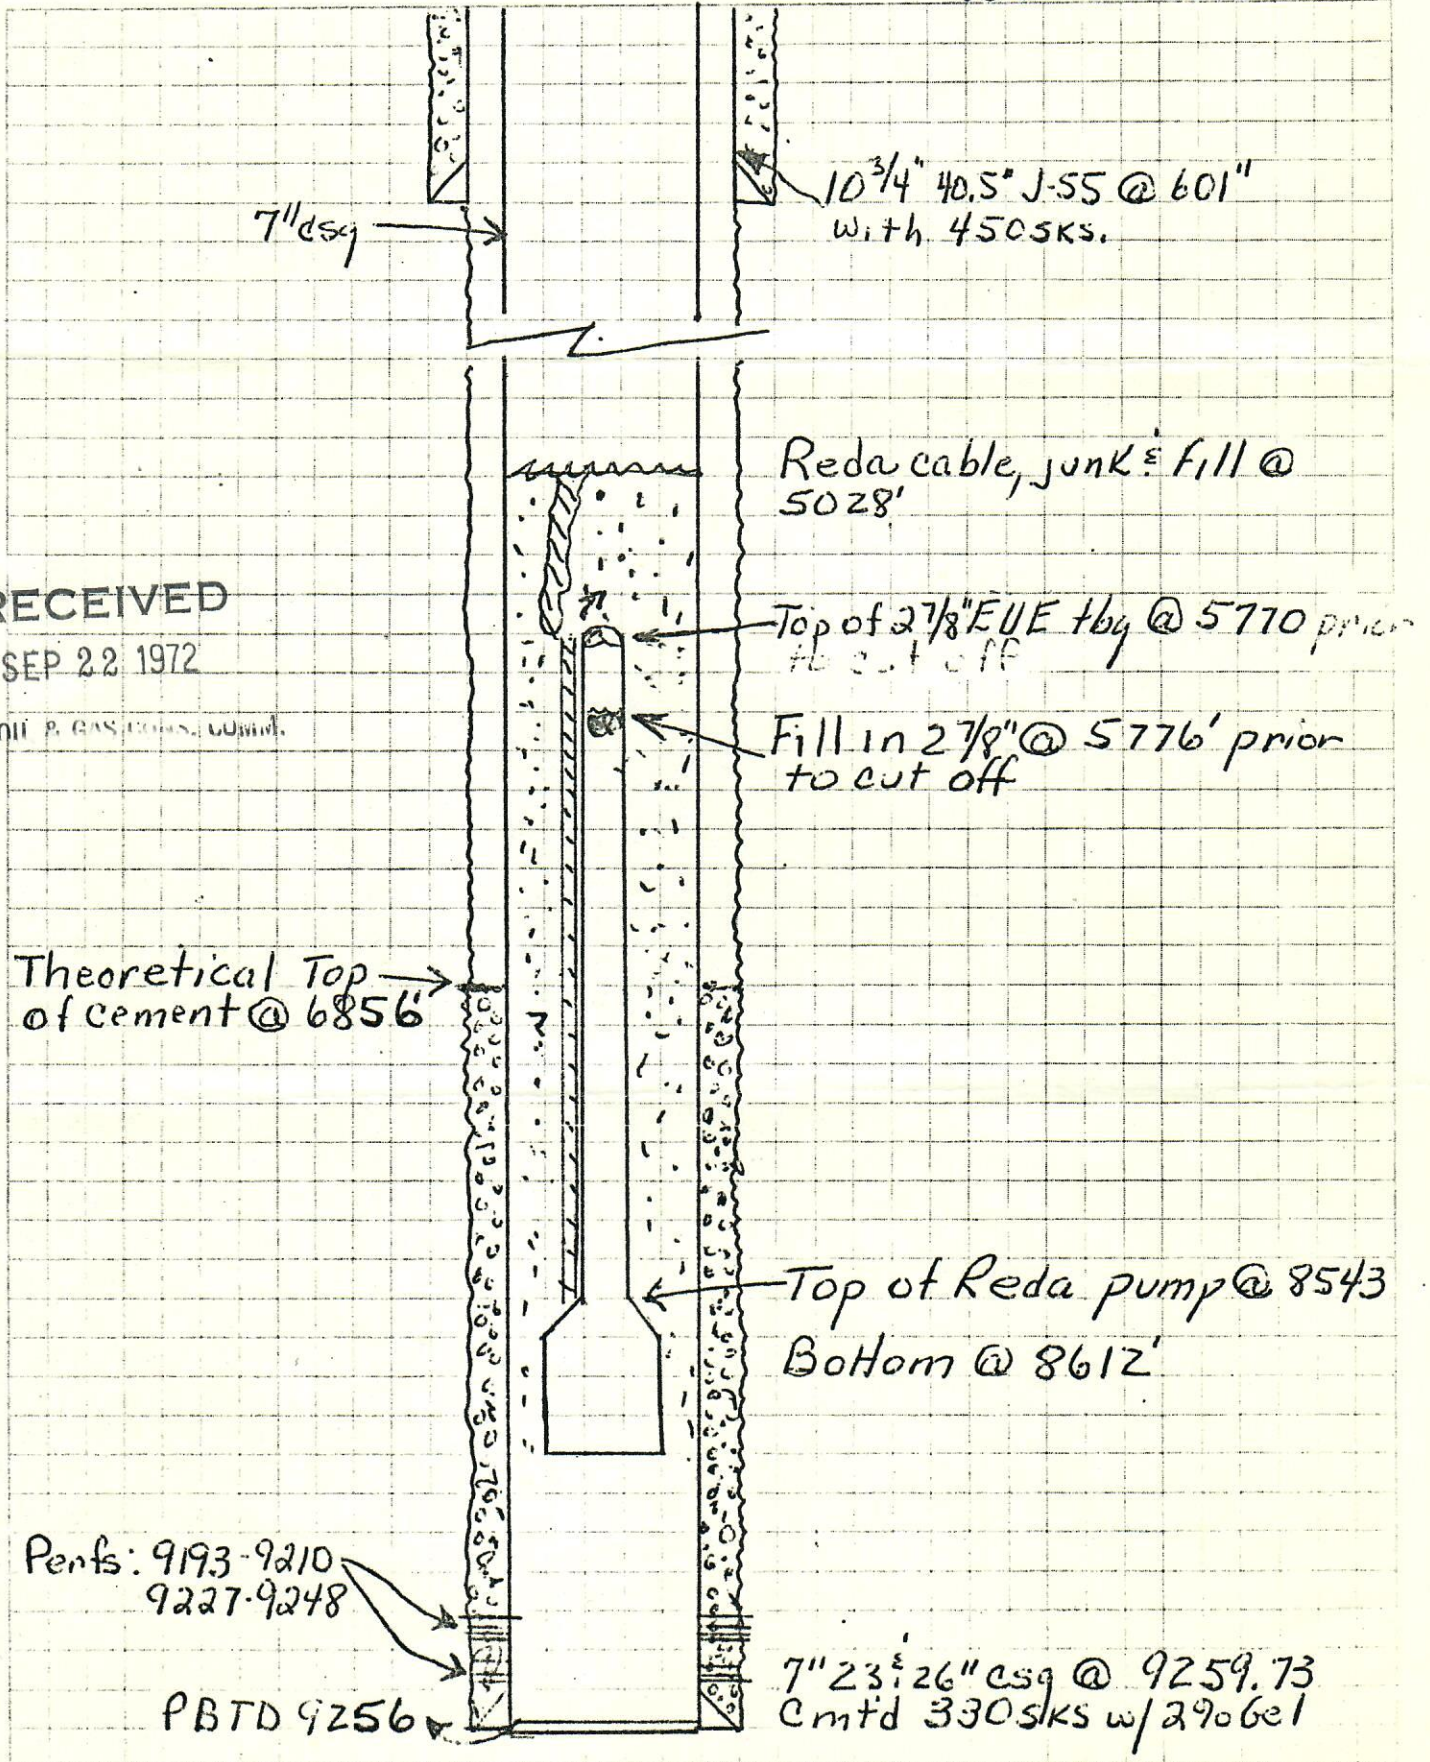 10 3/4" 40.5# J-55 @ 601"
with 450 sks.
7" csg
Reda cable, junk & fill @
5028'
RECEIVED
SEP 22 1972
OIL & GAS CONS. COMM.
Top of 2 7/8" EUE tbg @ 5770 prior
to cut off
Fill in 2 7/8" @ 5776' prior
to cut off
Theoretical Top
of cement @ 6856'
Top of Reda pump @ 8543
Bottom @ 8612'
Perfs: 9193-9210
9227-9248
7" 23 & 26" csg @ 9259.73
Cmt'd 330 sks w/ 2% Gel
PBTD 9256